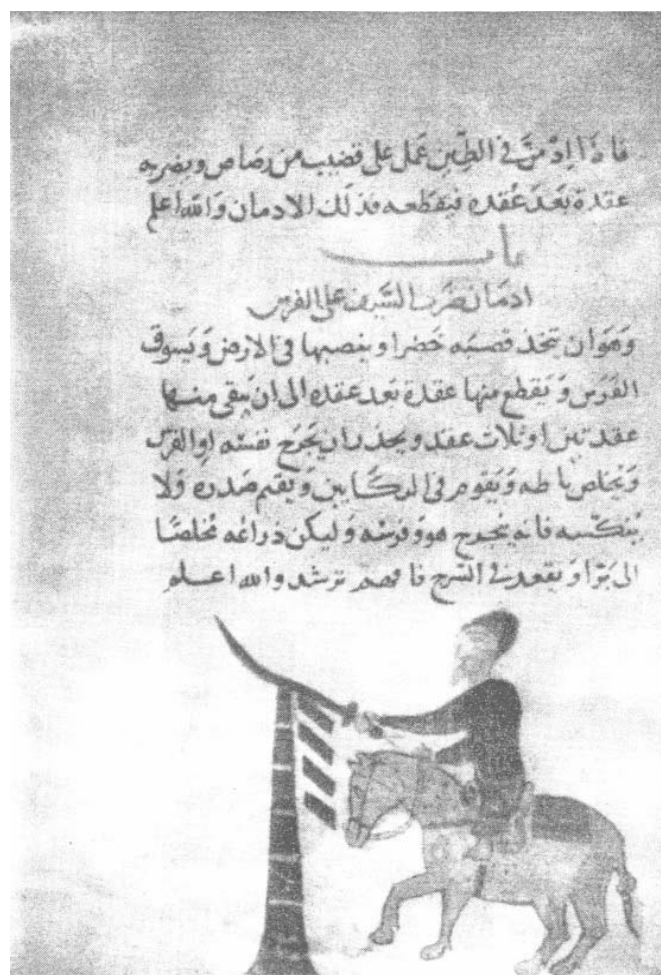 فاذا ادمن في الطين عمل على قضيب من رصاص ويضربه
عقدة بعد عقده فيقطعه فذلك الادمان والله اعلم
باب
ادمان ضرب السيف على الفرس
وهو ان تتخذ قصبه خضرا وينصبها في الارض ويسوق
الفرس ويقطع منها عقدة بعد عقده الى ان يبقى منها
عقدتين او ثلاث عقد ويحذر ان يجرح نفسه او الفرس
ويخلص باطه ويقوم في الركابين ويقيم صدره ولا
ينكسه فانه ينجرح هو وفرسه وليكن ذراعه مخلصا
الى برا ويقعد في السرج فافهم ترشد والله اعلم